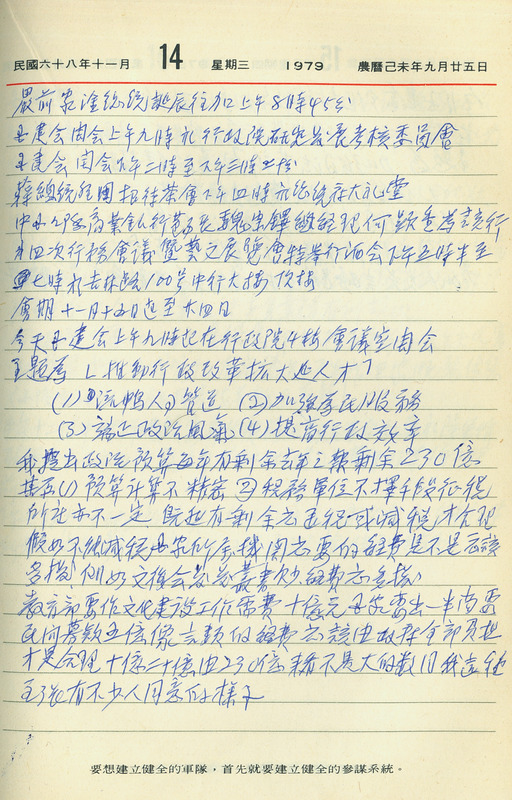 民國六十八年十一月 14 星期三 1979 農曆己未年九月廿五日
嚴前家淦總統誕辰往加上午8時45分
建會開會上午九時於行政院研究發展考核委員會
建會開會下午二時至下午三時
韓總統經國招待茶會下午四時於總統府大禮堂
商業銀行董事長 總經理何顯重為該行
行務會議暨藝文展覽會特舉行酒會下午五時半至
七時於吉林路100號中行大樓 樓
會期十一月十五日起至廿四日
今天 建會上午九時起在行政院4樓會議室開會
主題為「推動行政改革擴大延人才」
(1) 流暢人力管道 (2) 加強為民服務
(3) 端正政治風氣 (4) 提高行政效率
我提出政院預算每年有剩余去年之報剩余230億
甚至(1) 預算計算不精密 (2) 稅務單位不擇手段征稅
所在亦不一定 既然有剩余應退稅或減稅才合理
假如不能減稅 國家所屬機關需要的經費是不是應該
多撥 例如文復會 叢書 經費應多撥
教育部要作文化建設工作需費十億元國家要出一半尚要
民間募款五億像這類的經費應該由政府全部負担
才是合理十億二十億由230億來看不是大的數目我這種
主張有不少人同意的樣子
要想建立健全的軍隊,首先就要建立健全的參謀系統。